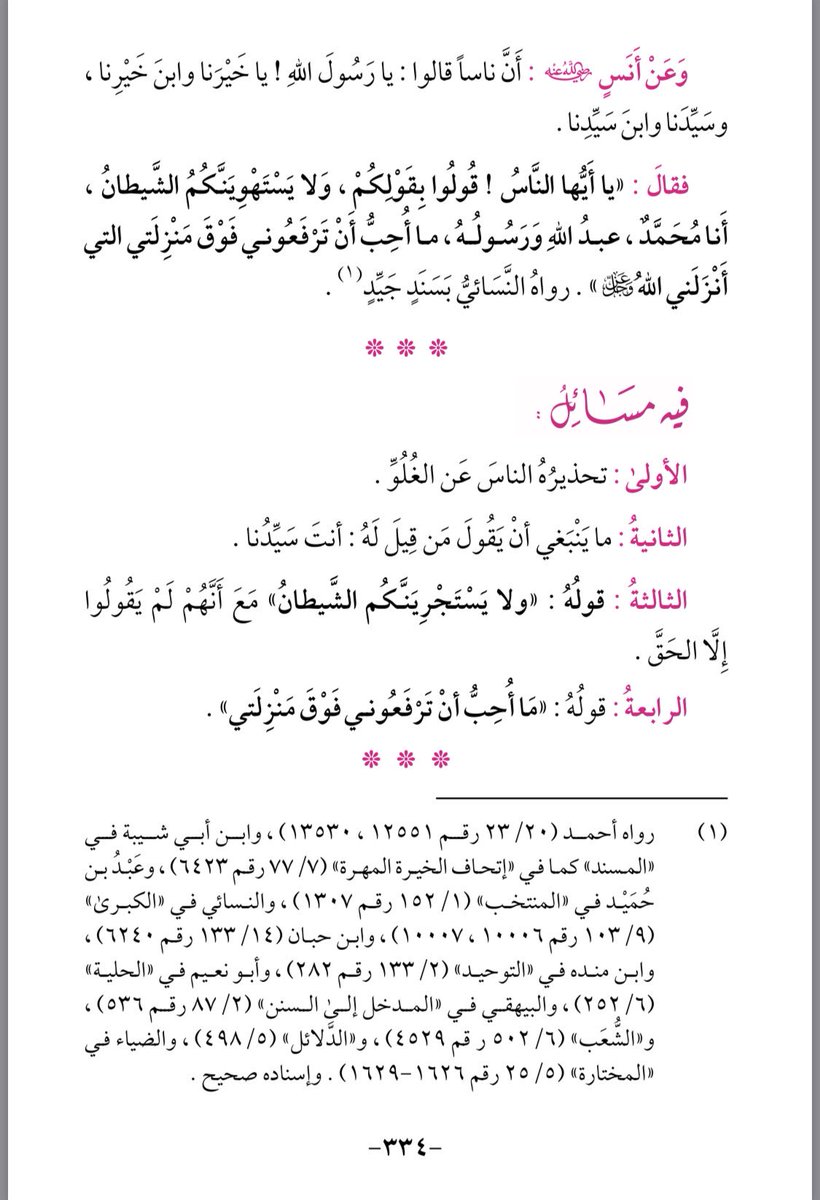 وَعَنْ أَنَسٍ رضي الله عنه : أَنَّ ناساً قالوا : يا رَسُولَ اللهِ ! يا خَيْرَنا وابنَ خَيْرِنا ،
وسَيِّدَنا وابنَ سَيِّدِنا .
فقالَ : «يا أَيُّها النَّاسُ ! قُولُوا بِقَوْلِكُمْ ، وَلا يَسْتَهْوِيَنَّكُمُ الشَّيطانُ ،
أَنا مُحَمَّدٌ ، عبدُ اللهِ وَرَسُولُهُ ، ما أُحِبُّ أَنْ تَرْفَعُوني فَوْقَ مَنْزِلَتي التي
أَنْزَلَني اللهُ عز وجل» . رواهُ النَّسَائيُّ بَسَنَدٍ جَيِّدٍ(١) .
فيه مسَائِلُ :
الأولىٰ : تحذيرُهُ الناسَ عَن الغُلُوِّ .
الثانيةُ : ما يَنْبَغي أنْ يَقُولَ مَن قِيلَ لَهُ : أنتَ سَيِّدُنا .
الثالثةُ : قولُهُ : «ولا يَسْتَجْرِيَنَّكُم الشَّيطانُ» مَعَ أَنَّهُمْ لَمْ يَقُولُوا
إِلَّا الحَقَّ .
الرابعةُ : قولُهُ : «مَا أُحِبُّ أنْ تَرْفَعُوني فَوْقَ مَنْزِلَتي» .
(١) رواه أحمد (٢٠/ ٢٣ رقم ١٢٥٥١ ، ١٣٥٣٠) ، وابن أبي شيبة في
«المسند» كما في «إتحاف الخيرة المهرة» (٧/ ٧٧ رقم ٦٤٢٣) ، وعَبْدُ بن
حُمَيْد في «المنتخب» (١/ ١٥٢ رقم ١٣٠٧) ، والنسائي في «الكبرىٰ»
(٩/ ١٠٣ رقم ١٠٠٠٦ ، ١٠٠٠٧) ، وابن حبان (١٤/ ١٣٣ رقم ٦٢٤٠) ،
وابن منده في «التوحيد» (٢/ ١٣٣ رقم ٢٨٢) ، وأبو نعيم في «الحلية»
(٦/ ٢٥٢) ، والبيهقي في «المدخل إلىٰ السنن» (٢/ ٨٧ رقم ٥٣٦) ،
و«الشُّعَب» (٦/ ٥٠٢ ر قم ٤٥٢٩) ، و«الدَّلائل» (٥/ ٤٩٨) ، والضياء في
«المختارة» (٥/ ٢٥ رقم ١٦٢٦-١٦٢٩) . وإسناده صحيح .
-٣٣٤-